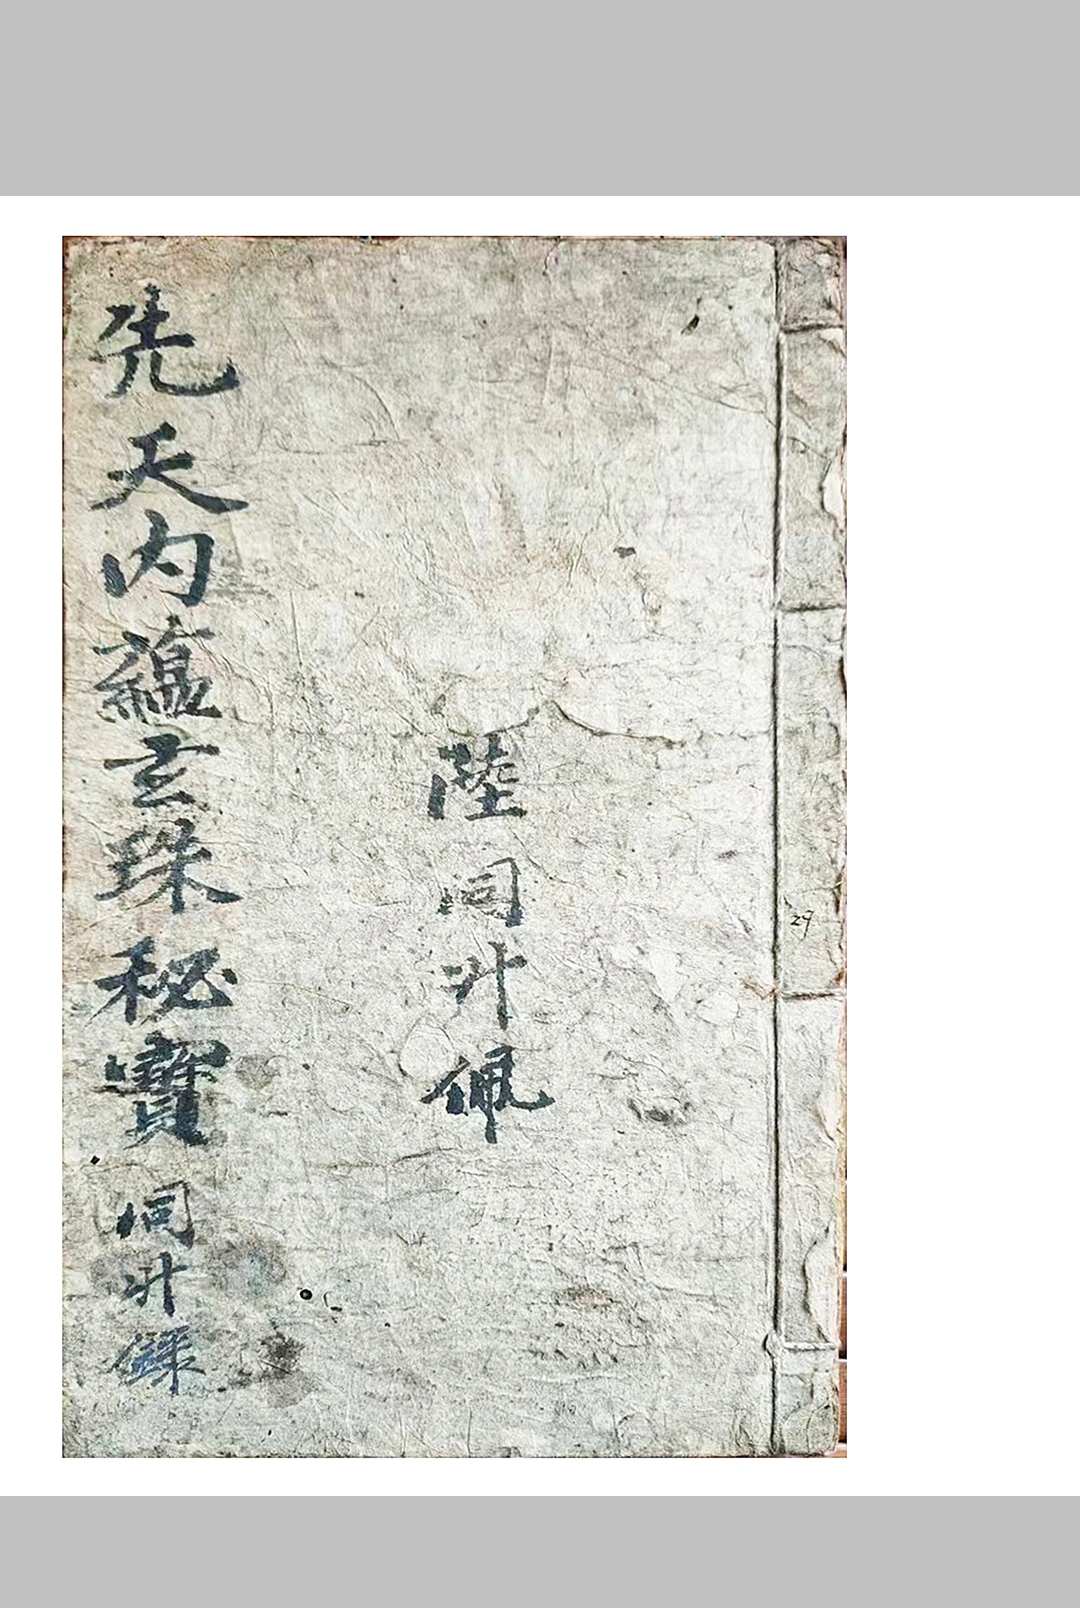 陸同升佩
先天內蘊玄珠秘寶 同升錄
29